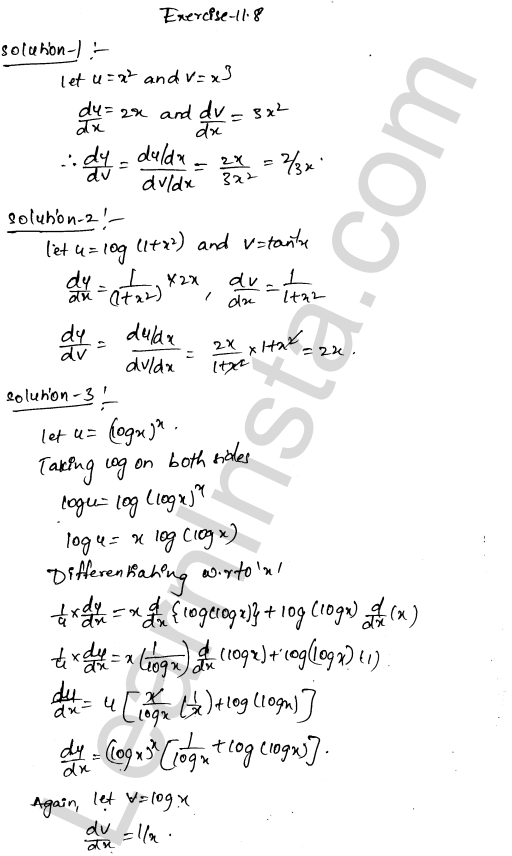 Exercise-11.8
Solution-1 :-
let u = x² and v = x³
du/dx = 2x and dv/dx = 3x²
∴ du/dv = (du/dx)/(dv/dx) = 2x/3x² = 2/3x .
Solution-2 :-
let u = log (1+x²) and v = tan⁻¹x
du/dx = 1/(1+x²) × 2x , dv/dx = 1/1+x²
du/dv = (du/dx)/(dv/dx) = 2x/1+x² × 1+x² = 2x .
Solution-3 :-
let u = (logx)ˣ .
Taking log on both sides
logu = log (logx)ˣ
log u = x log (logx)
Differentiating w.r.to 'x'
1/u × du/dx = x d/dx {log(logx)} + log (logx) d/dx (x)
1/u × du/dx = x (1/logx) d/dx (logx) + log(logx) (1)
du/dx = u [x/logx (1/x) + log (logx)]
du/dx = (logx)ˣ [1/logx + log (logx)] .
Again, let v = log x
dv/dx = 1/x .
LearnInsta.com